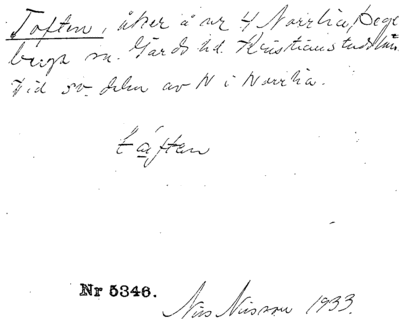 Toften, åker å nr 4 Norrlia, Dege
berga sn. Gärds hd. Kristianstads län.
Vid sv. delen av N i Norrlia.
tåften
Nr 5346.
Nils Nilsson 1933.